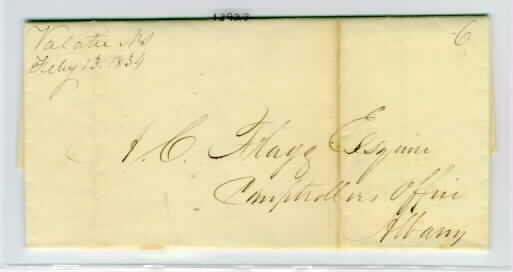 Valatie NY
Feby 13. 1834
6
A. C. Flagg Esquire
Comptrollers Office
Albany